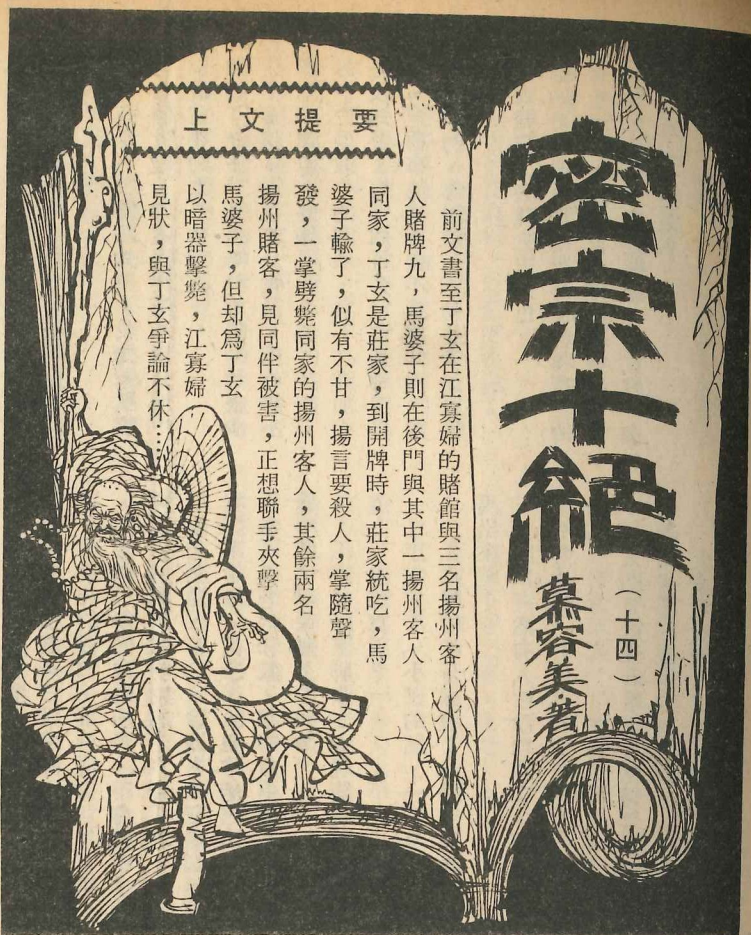 密宗十絕
（十四）
慕容美·著
上文提要
前文書至丁玄在江寡婦的賭館與三名揚州客
人賭牌九，馬婆子則在後門與其中一揚州客人
同家，丁玄是莊家，到開牌時，莊家統吃，馬
婆子輸了，似有不甘，揚言要殺人，掌隨聲
發，一掌劈斃同家的揚州客人，其餘兩名
揚州賭客，見同伴被害，正想聯手夾擊
馬婆子，但却爲丁玄
以暗器擊斃，江寡婦
見狀，與丁玄爭論不休⋯⋯